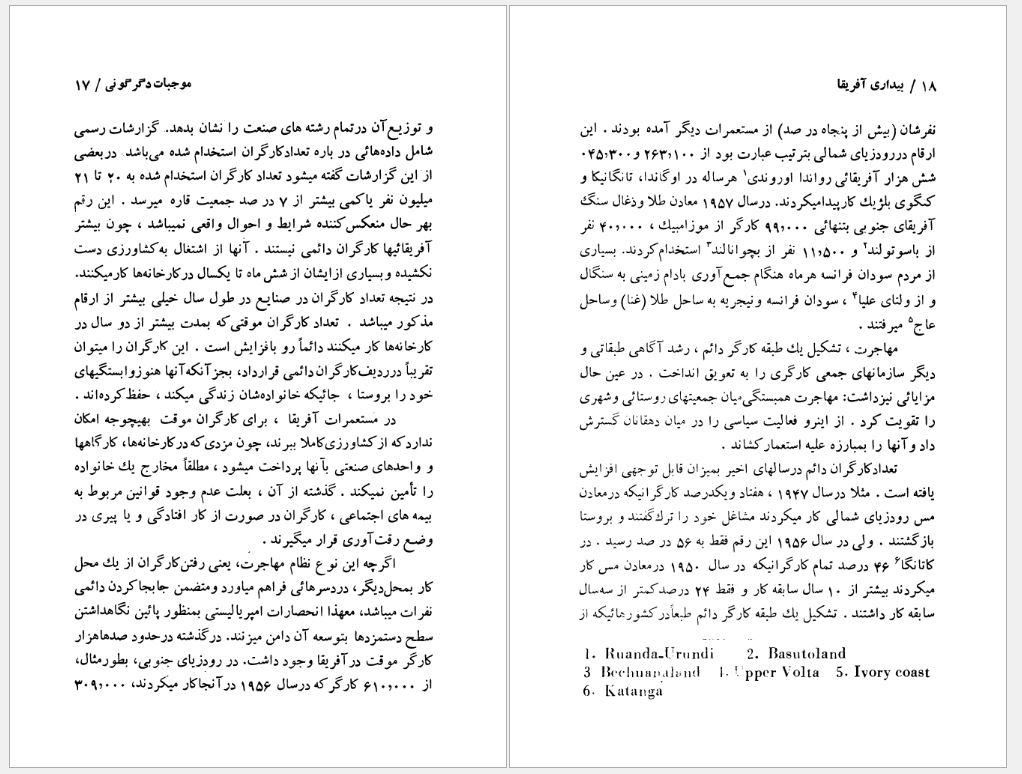 موجبات دگرگونی / ۱۷
و توزیع آن درتمام رشته های صنعت را نشان بدهد. گزارشات رسمی
شامل داده‌هائی در باره تعدادکارگران استخدام شده می‌باشد. دربعضی
از این گزارشات گفته میشود تعداد کارگران استخدام شده به ۲۰ تا ۲۱
میلیون نفر یاکمی بیشتر از ۷ در صد جمعیت قاره میرسد . این رقم
بهر حال منعکس‌کننده شرایط و احوال واقعی نمیباشد ، چون بیشتر
آفریقائیها کارگران دائمی نیستند . آنها از اشتغال به‌کشاورزی دست
نکشیده وبسیاری ازایشان از شش ماه تا یکسال درکارخانه‌ها کارمیکنند.
در نتیجه تعداد کارگران در صنایع در طول سال خیلی بیشتر از ارقام
مذکور میباشد . تعداد کارگران موقتی‌که بمدت بیشتر از دو سال در
کارخانه‌ها کار میکنند دائماً رو بافزایش است . این کارگران را میتوان
تقریباً درردیف‌کارگران دائمی قرارداد، بجز آنکه‌آنها هنوزوابستگیهای
خود را بروستا ، جائیکه خانواده‌شان زندگی میکند ، حفظ‌کرده‌اند .
در مستعمرات آفریقا ، برای کارگران موقت بهیچوجه امکان
نداردکه ازکشاورزی‌کاملا ببرند، چون مزدی‌که درکارخانه‌ها، کارگاهها
و واحدهای صنعتی بآنها پرداخت میشود ، مطلقاً مخارج یك خانواده
را تأمین نمیکند . گذشته از آن ، بعلت عدم وجود قوانین مربوط به
بیمه های اجتماعی ، کارگران در صورت از کار افتادگی و یا پیری در
وضع رقت‌آوری قرار میگیرند .
اگرچه این نوع نظام مهاجرت، یعنی رفتن‌کارگران از یك محل
کار بمحل‌دیگر، دردسرهائی فراهم میاورد ومتضمن جابجاکردن دائمی
نفرات میباشد، معهذا انحصارات امپریالیستی بمنظور پائین نگاهداشتن
سطح دستمزدها بتوسعه آن دامن میزنند. درگذشته درحدود صدهاهزار
کارگر موقت درآفریقا وجود داشت. در رودزیای جنوبی، بطورمثال،
از ۶۱۰,۰۰۰ کارگر که درسال ۱۹۵۶ در آنجاکار میکردند، ۳۰۹,۰۰۰
۱۸ / بیداری آفریقا
نفرشان (بیش از پنجاه در صد) از مستعمرات دیگر آمده بودند . این
ارقام دررودزیای شمالی بترتیب عبارت بود از ۲۶۳,۱۰۰ و ۰۴۵,۳۰۰
شش هزار آفریقائی رواندا اوروندی۱ هرساله در اوگاندا، تانگانیکا و
کنگوی بلژیك کارپیدامیکردند. درسال ۱۹۵۷ معادن طلا وذغال سنگ
آفریقای جنوبی بتنهائی ۹۹,۰۰۰ کارگر از موزامبیك ، ۴۰,۰۰۰ نفر
از باسوتولند۲ و ۱۱,۵۰۰ نفر از بچوانالند۳ استخدام‌کردند. بسیاری
از مردم سودان فرانسه هرماه هنگام جمع‌آوری بادام زمینی به سنگال
و از ولتای علیا۴ ، سودان فرانسه ونیجریه به ساحل طلا (غنا) وساحل
عاج۵ میرفتند .
مهاجرت ، تشکیل یك طبقه کارگر دائم ، رشد آگاهی طبقاتی و
دیگر سازمانهای جمعی کارگری را به تعویق انداخت . در عین حال
مزایائی نیزداشت: مهاجرت همبستگی‌میان جمعیتهای روستائی وشهری
را تقویت کرد . از اینرو فعالیت سیاسی را در میان دهقانان گسترش
داد وآنها را بمبارزه علیه استعمارکشاند .
تعدادکارگران دائم درسالهای اخیر بمیزان قابل توجهی افزایش
یافته است . مثلا درسال ۱۹۴۷ ، هفتاد ویکدرصد کارگرانیکه درمعادن
مس رودزیای شمالی کار میکردند مشاغل خود را ترك‌گفتند و بروستا
بازگشتند . ولی در سال ۱۹۵۶ این رقم فقط به ۵۶ در صد رسید . در
کاتانگا۶ ۴۶ درصد تمام کارگرانیکه در سال ۱۹۵۰ درمعادن مس کار
میکردند بیشتر از ۱۰ سال سابقه کار و فقط ۲۴ درصدکمتر از سه‌سال
سابقه کار داشتند . تشکیل یك طبقه کارگر دائم طبعاًدرکشورهائیکه از
1. Ruanda-Urundi 2. Basutoland
3 Bechuanaland 4. Upper Volta 5. Ivory coast
6. Katanga